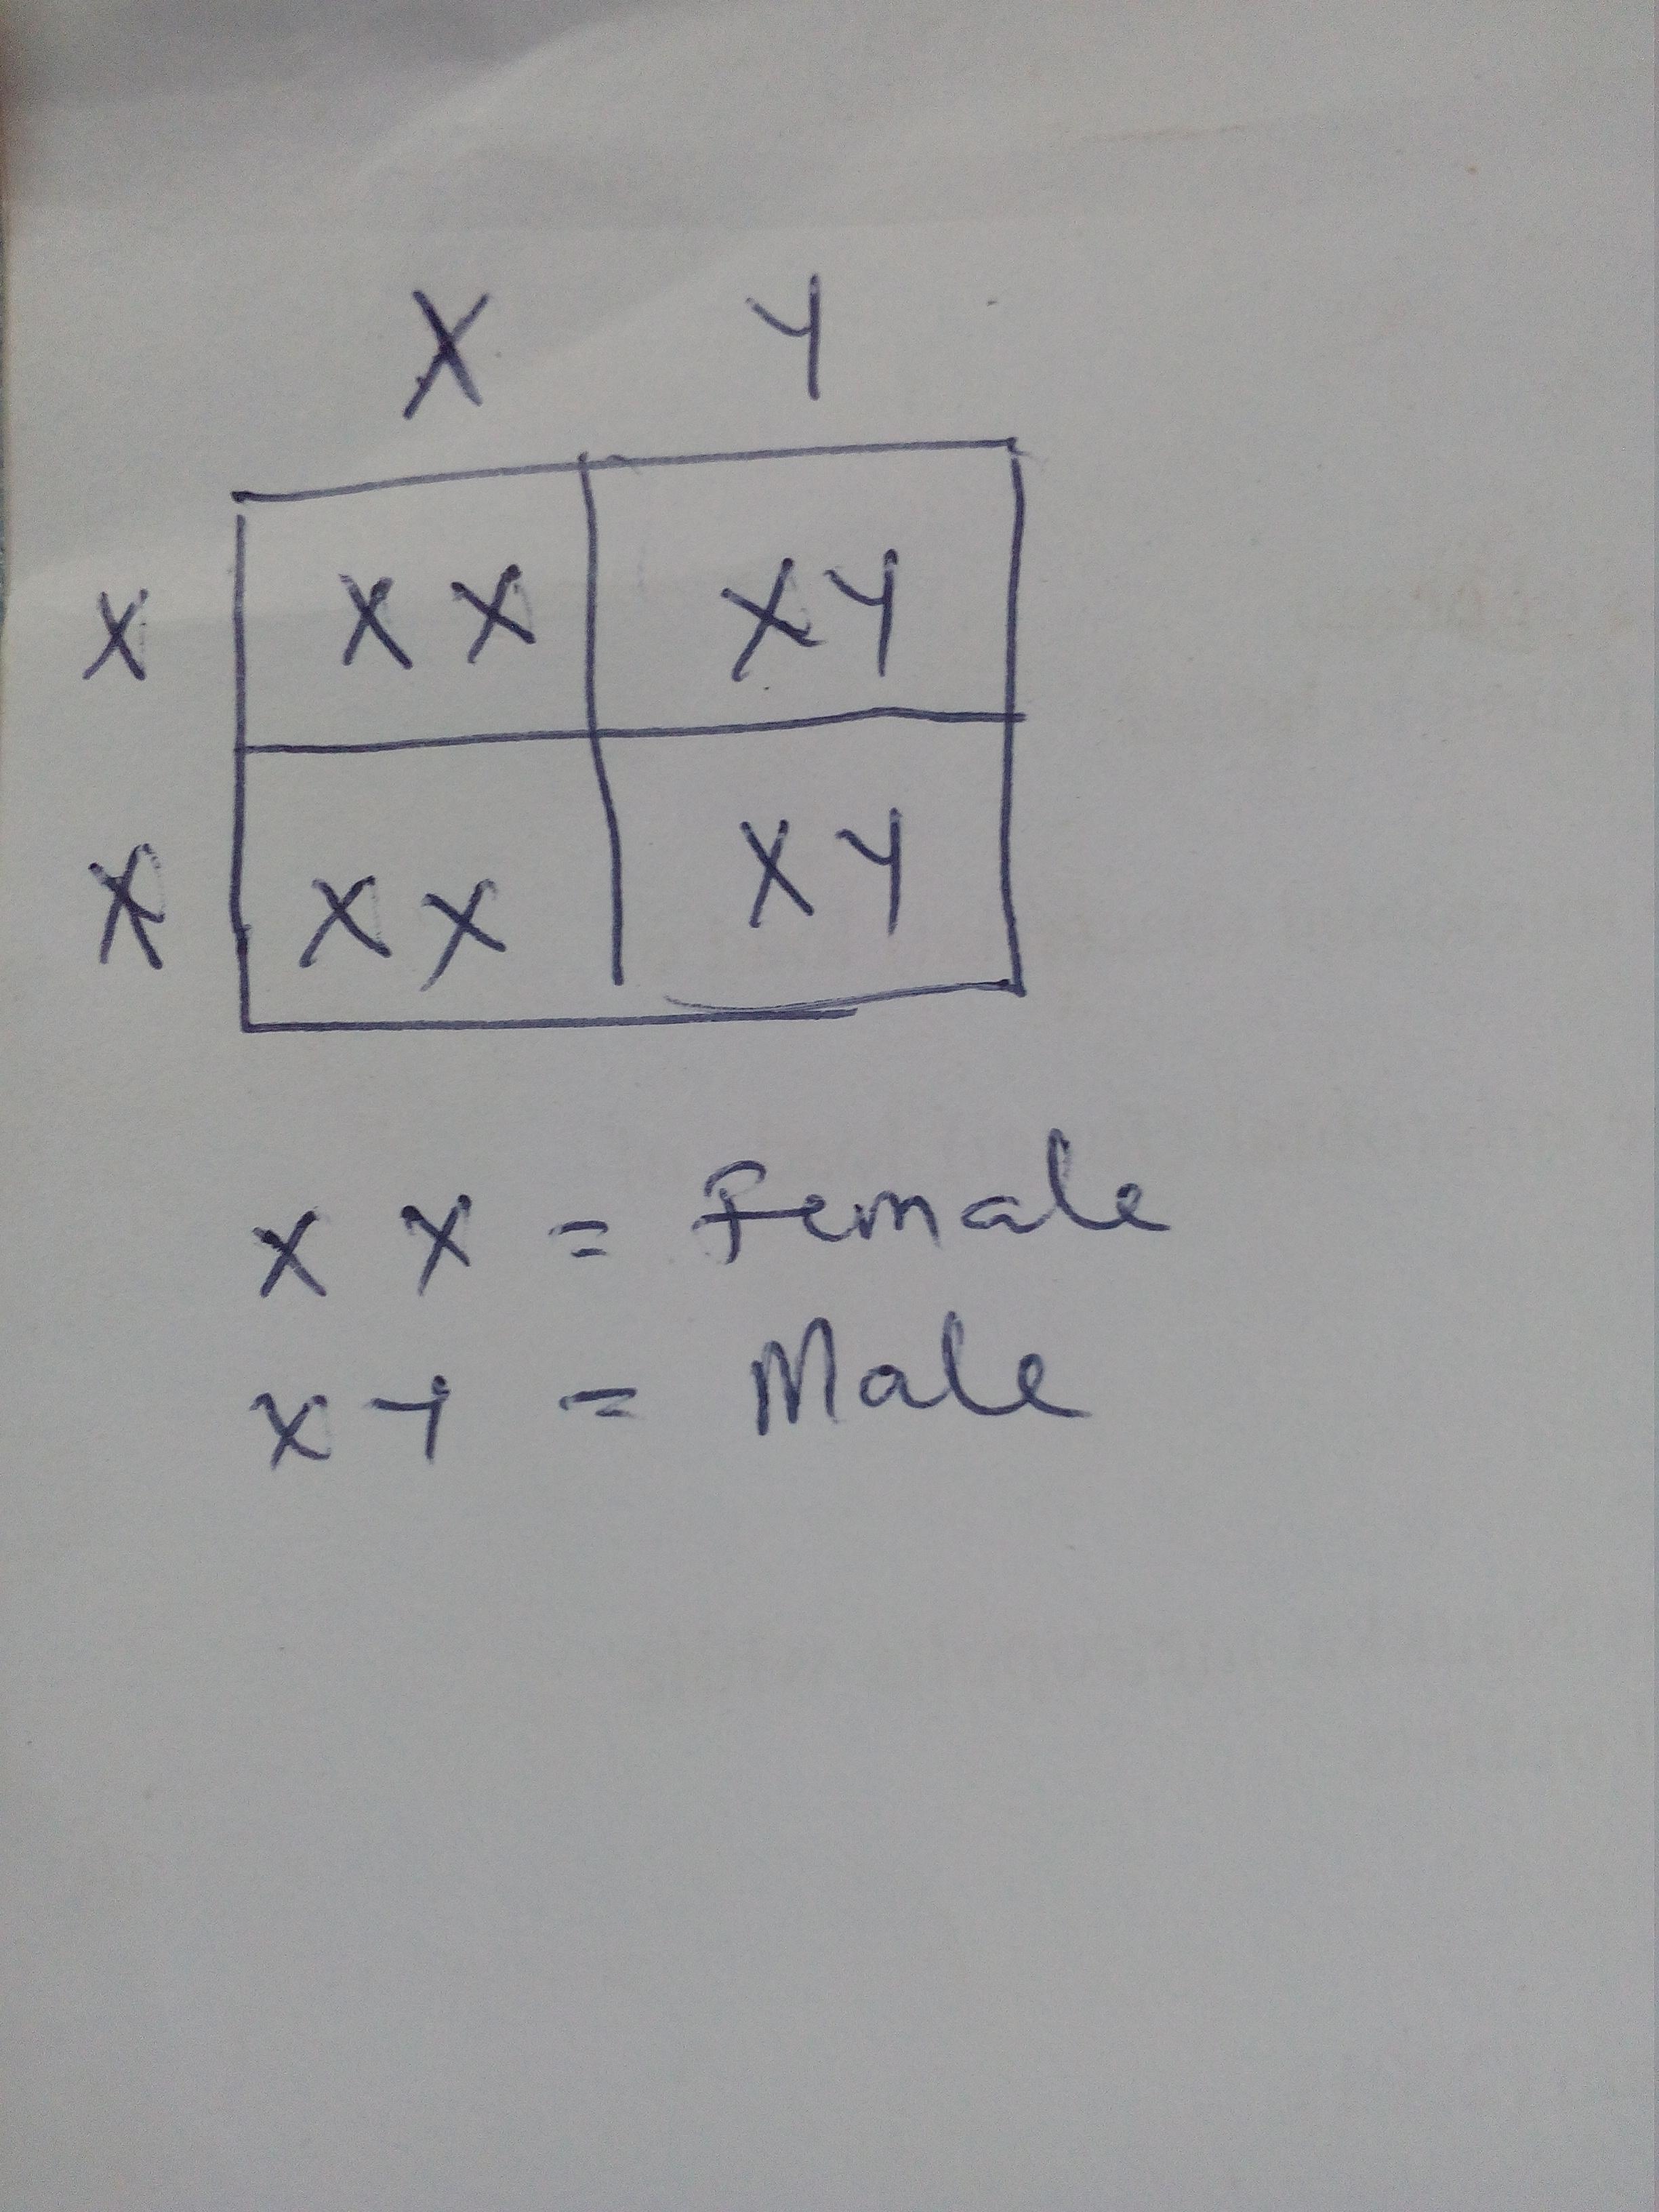 X Y
X XX XY
X XX XY
XX = Female
XY = Male